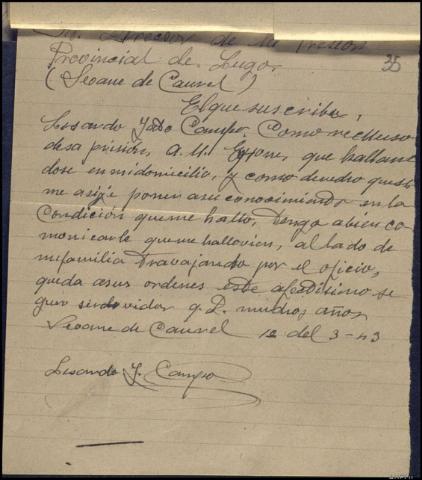 Sr. Director de la Prision
Provincial de Lugo. 35
(Seoane de Caurel)
El que suscribe,
Lisardo Campo, Como recluso
desa prision, a V.I. Expone, que hallan
dose en mi domicilio, y como
me asije poner asu conocimiento en la
Condición queme hallo, Tengo abien co
monicarle que me hallo vien, al lado de
mi familia Travajando por el oficio,
queda a sus ordenes este afectisimo se
guro q. D. muchos años
Seoane de Caurel 12 del 3-43
Lisardo Y. Campo